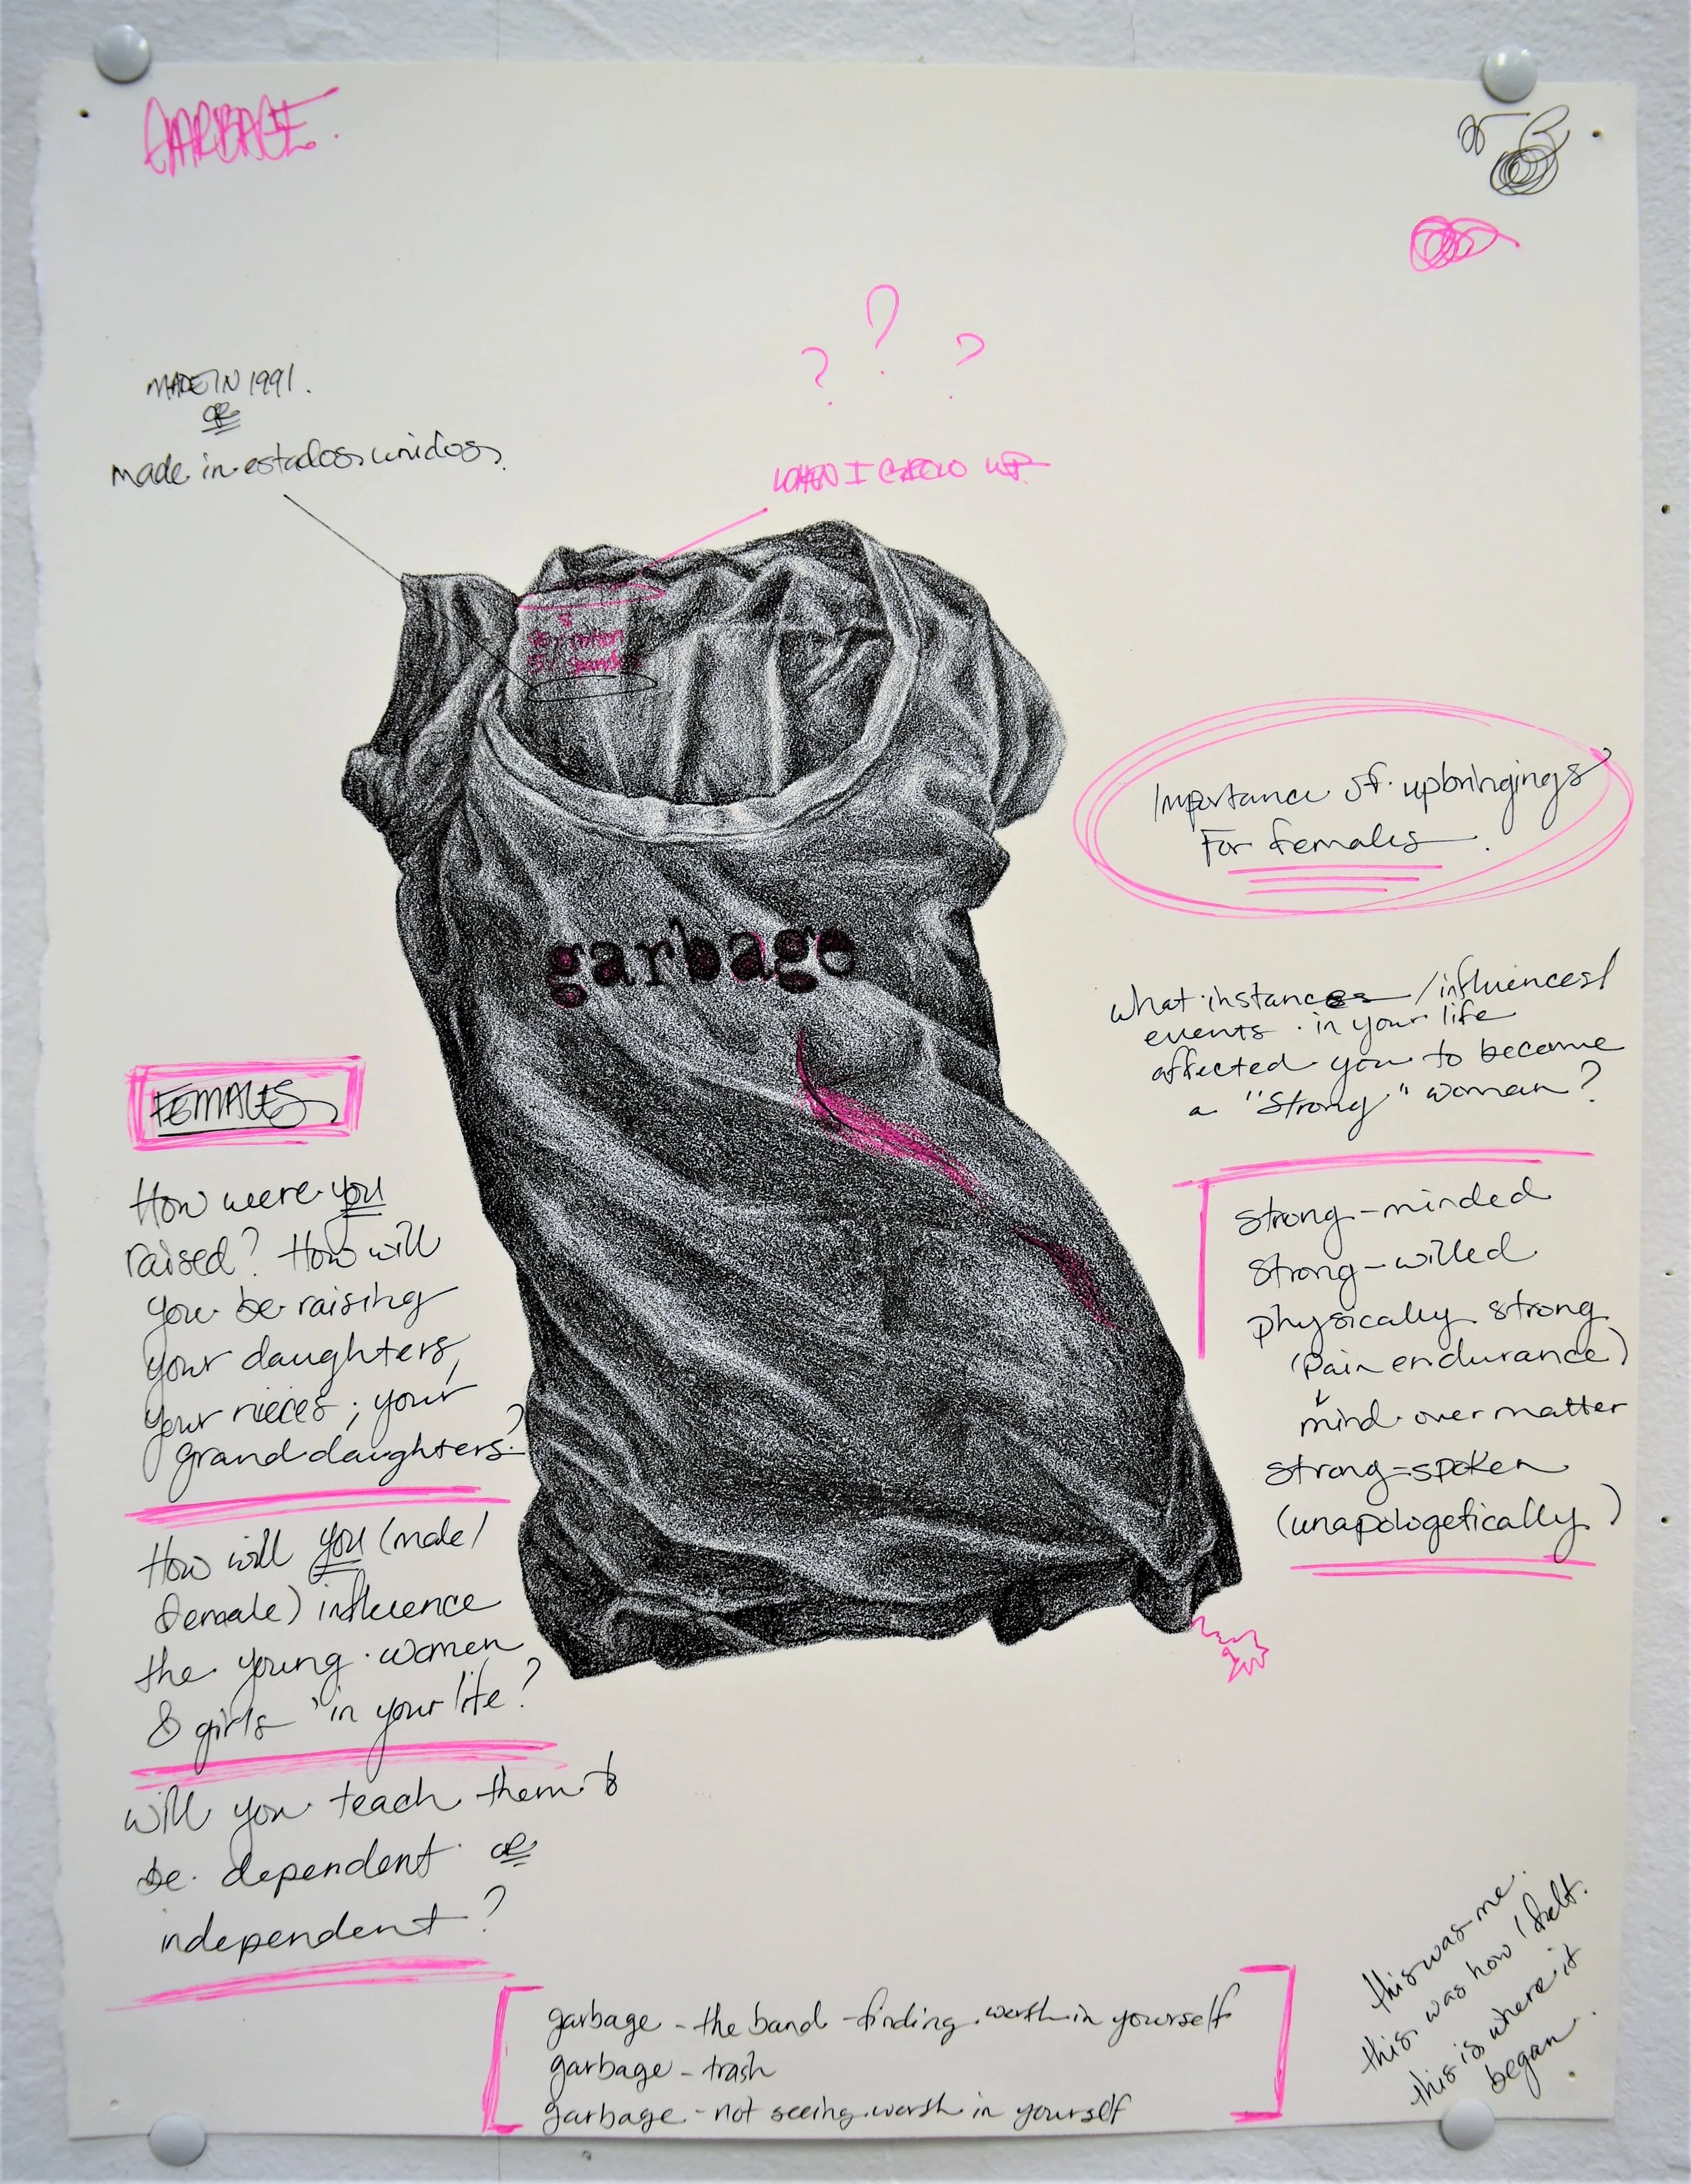 GARBAGE.
MADE IN 1991.
OR
made in estados unidos.
? ? ?
WHEN I GROW UP
S
95% cotton
5%
garbage
Importance of upbringings
For females.
what instances/influences/
events in your life
affected you to become
a "strong" woman?
strong-minded
strong-willed
physically strong
(pain endurance)
mind over matter
strong-spoken
(unapologetically)
FEMALES
How were you
raised? How will
you be raising
your daughters,
your nieces; your
granddaughters?
How will you (male/
female) influence
the young women
& girls in your life?
will you teach them to
be dependent or
independent?
garbage - the band - finding worth in yourself
garbage - trash
garbage - not seeing worth in yourself
this was me.
this was how I felt.
this is where it
began.